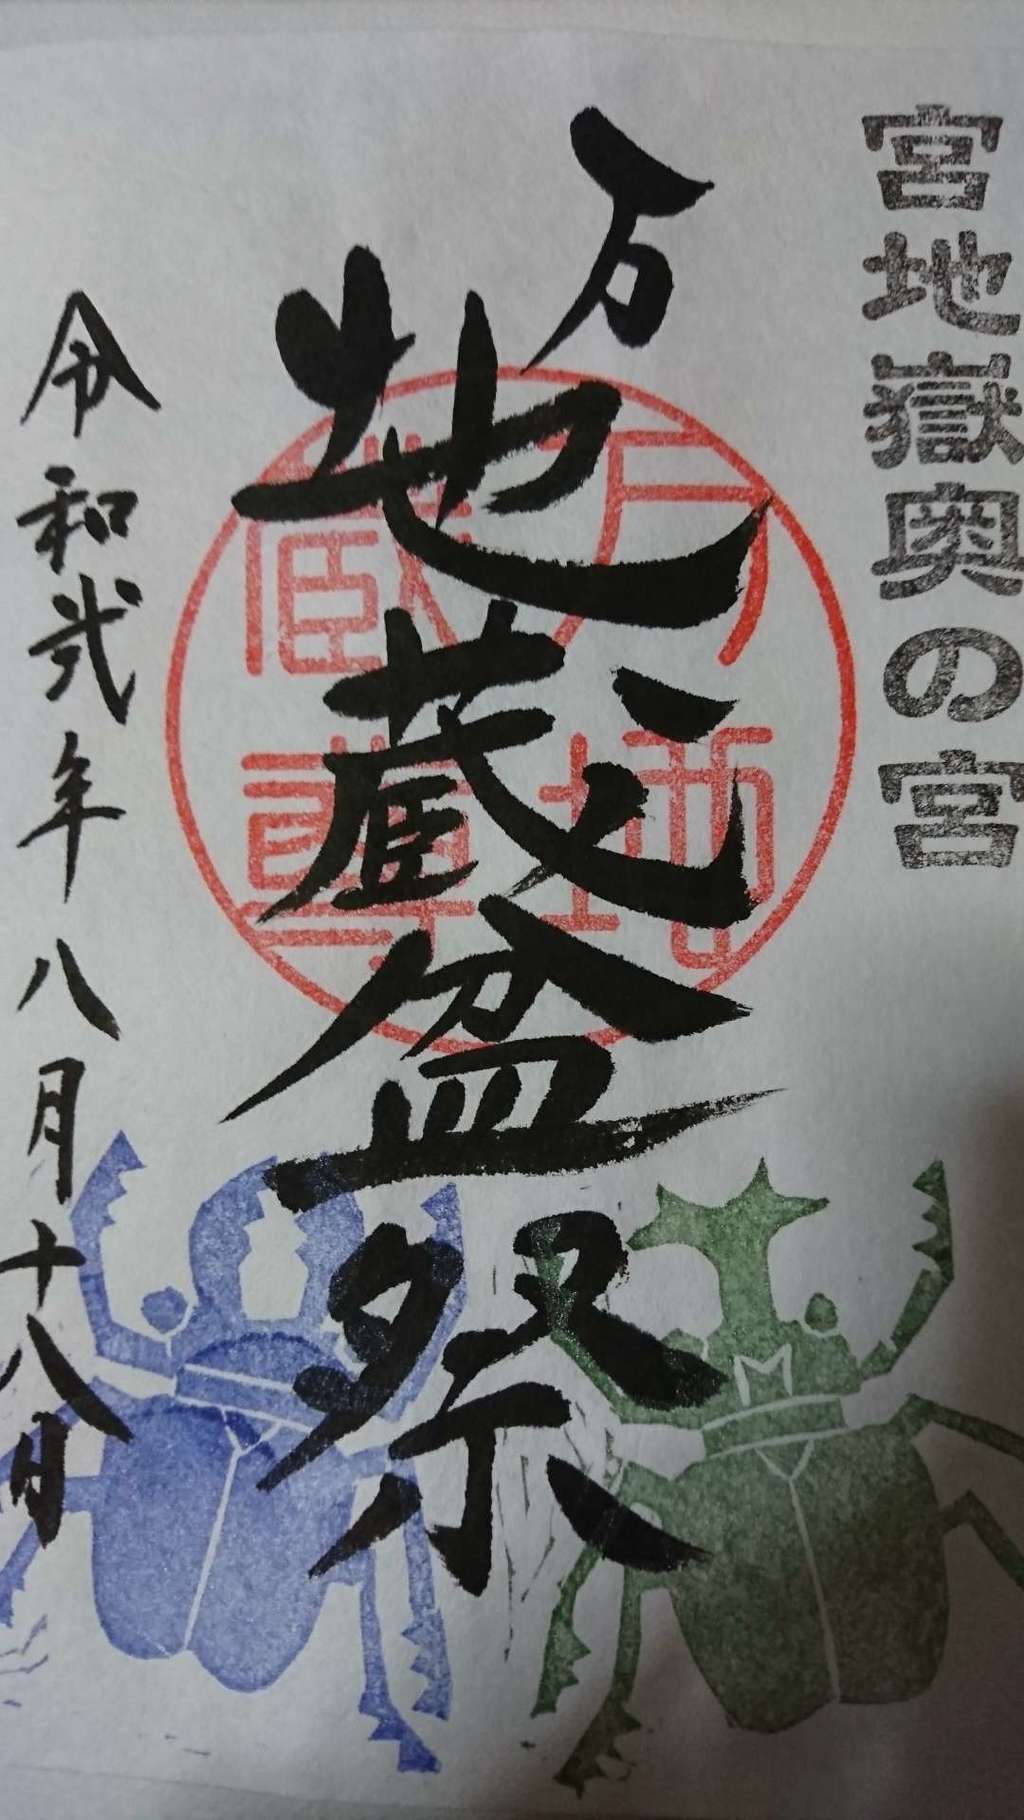 宮地嶽奥の宮
万地蔵盆祭
万地蔵尊
令和弐年八月十八日